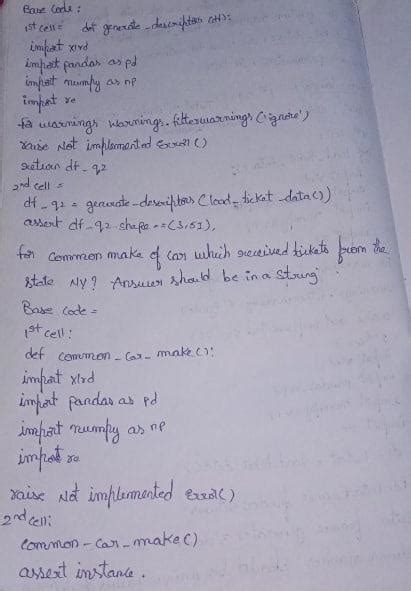 Base Code:
1st cell = def generate-descriptors (df):
import xlrd
import pandas as pd
import numpy as np
import re
warnings warnings.filterwarnings ('ignore')
raise Not implemented Error ()
return df-q2
2nd cell =
df-q2 = generate-descriptors (load-ticket-data())
assert df-q2.shape == (3,51),
for common make of car which received tickets from the
state NY? Answer should be in a String
Base Code =
1st cell:
def common-car-make():
import xlrd
import pandas as pd
import numpy as np
import re
raise Not implemented Error()
2nd cell:
common-car-make()
assert instance.